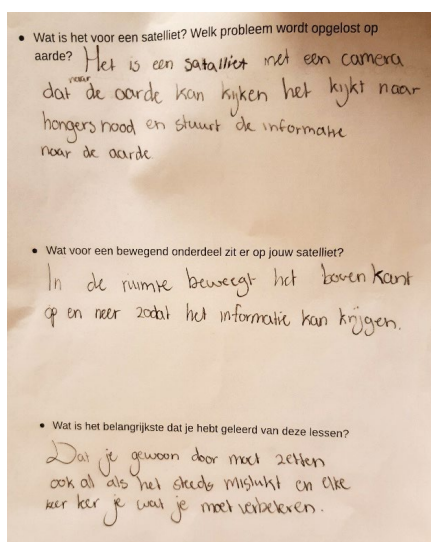 • Wat is het voor een satelliet? Welk probleem wordt opgelost op
aarde? Het is een satalliet met een camera
dat naar de aarde kan kijken het kijkt naar
hongersnood en stuurt de informatie
naar de aarde
• Wat voor een bewegend onderdeel zit er op jouw satelliet?
In de ruimte beweegt het bovenkant
op en neer zodat het informatie kan krijgen.
• Wat is het belangrijkste dat je hebt geleerd van deze lessen?
Dat je gewoon door moet zetten
ook al als het steeds mislukt en elke
keer leer je wat je moet verbeteren.